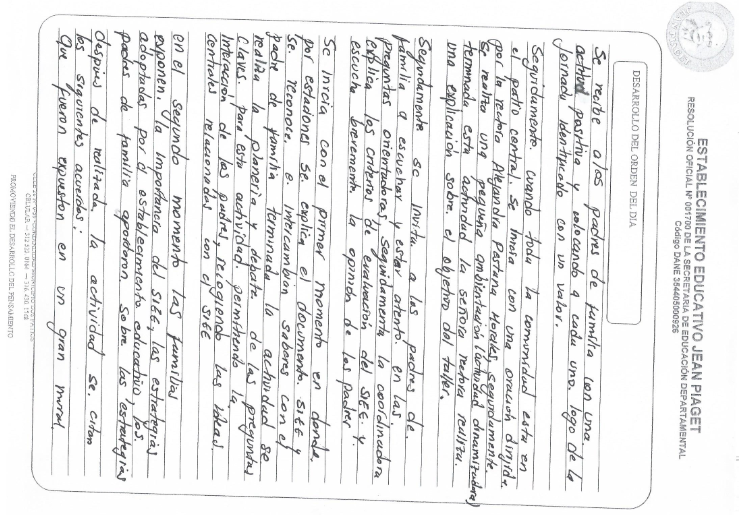 ESTABLECIMIENTO EDUCATIVO JEAN PIAGET
RESOLUCIÓN OFICIAL Nº 001700 DE LA SECRETARIA DE EDUCACIÓN DEPARTAMENTAL
Código DANE 354405000926
DESARROLLO DEL ORDEN DEL DIA
Se recibe a los padres de familia con una
actitud positiva y colocando a cada uno. logo de la
jornada identificado con un valor.
Seguidamente. cuando toda la comunidad esta en
el patio central. Se inicia con una oración dirigida
por la rectora Alejandra Pastrana Morales, seguidamente
se realiza una pequeña ambientación (actividad dinamizadora)
terminada esta actividad la señora rectora realiza.
una explicación sobre el objetivo del taller.
Seguidamente se invita a las padres de.
familia a escuchar y estar atento. en las
Preguntas orientadoras, seguidamente la coordinadora
explica las criterios de evaluación del SIEE. y
escucha brevemente la opinión de las padres
Se inicia con el primer momento en donde.
por estaciones se. explica el documento. SIEE y
se. reconoce. e. intercambian saberes con el
padre de familia terminada la actividad se
realiza la planeria y debate de las preguntas
claves. para esta actividad. permitiendo la
Interacción de las padres, recogiendo las ideas
centrales relacionadas con el SIEE
en el segundo momento las familias
exponen. la importancia del SIEE, las estrategias
adoptadas por el establecimiento educativo, los.
padres de familia aportaron sobre las estrategias
despues de realizada. la actividad se. citan
los siguientes acuerdos:
Que fueron expuestos en un gran mural.
PROMOVIENDO EL DESARROLLO DEL PENSAMIENTO